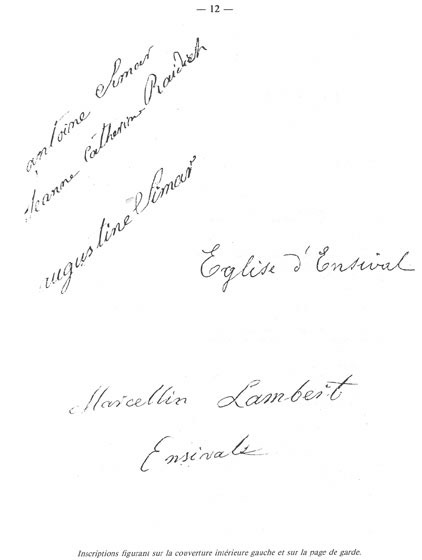 — 12 —
antoine Simar
Jeanne Catherine Raidich
augustine Simar
Eglise d'Ensival
Marcellin Lambert
Ensivale
Inscriptions figurant sur la couverture intérieure gauche et sur la page de garde.